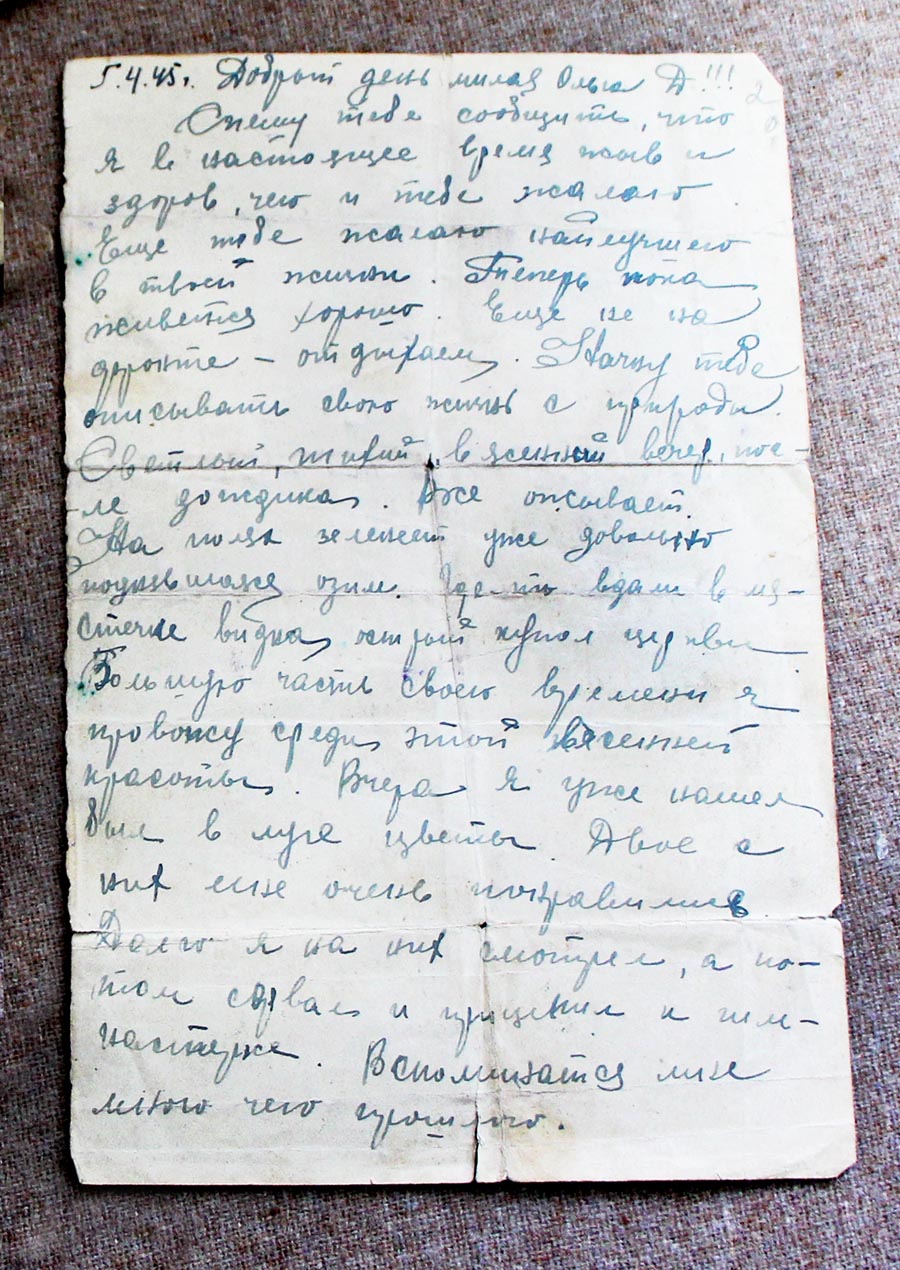 5.4.45г. Добрый день милая Ольга Д!!!
Спешу тебе сообщить, что
я в настоящее время жыв и
здоров, чего и тебе жалаю
Еще тебе жалаю найлучшего
в твоей жизни. Теперь пока
живется хорошо. Еще не на
фронте – отдыхаем. Начну тебе
описывать свою жизнь с природы.
Светлый, тихий, весенний вечер, пос-
-ле дождика. Все оживает.
На полях зеленеет уже довольно
поднявшаяся озим. Где-то вдали в мя-
стечке видна острый купол церкви
Большую часть своего времени я
провожу среди этой весенней
красоты. Вчера я уже нашел
был в луге цветы. Двое с
них мне очень понравились
Долго я на них смотрел, а по-
том сорвал и прицепил к гим-
настерке. Вспоминается мне
много чего прошлого.